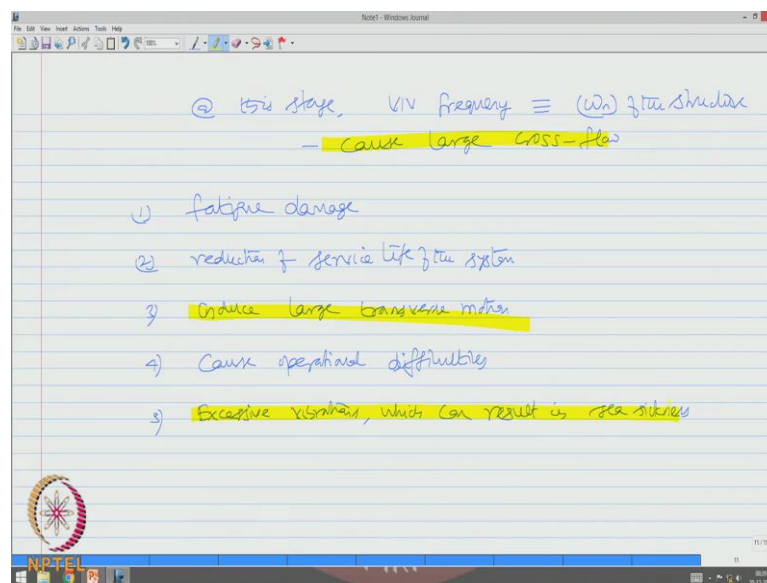 Note1 - Windows Journal
File Edit View Insert Actions Tools Help
100%
@ this stage, VIV frequency ≡ (ωn) of the structure
– cause large cross-flow
1) fatigue damage
2) reduction of service life of the system
3) induce large transverse motion
4) Cause operational difficulties
5) Excessive vibrations, which can result in sea sickness
NPTEL
11/11
11